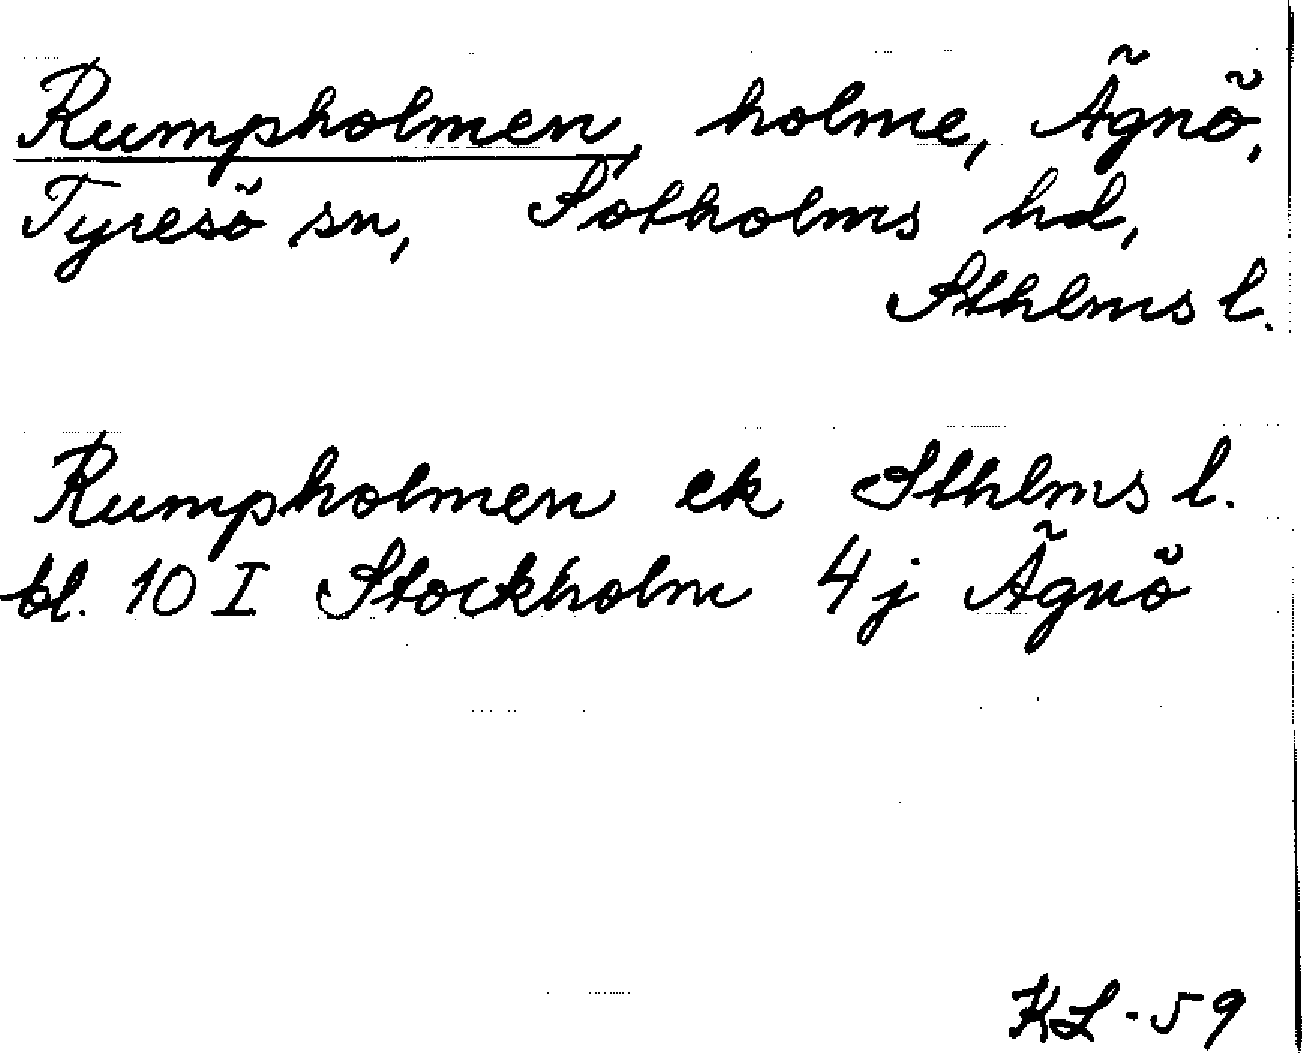 Rumpholmen, holme, Ägnö,
Tyresö sn, Sotholms hd,
Sthlms l.
Rumpholmen ek Sthlms l.
bl. 10 I Stockholm 4j Ägnö
KL-59